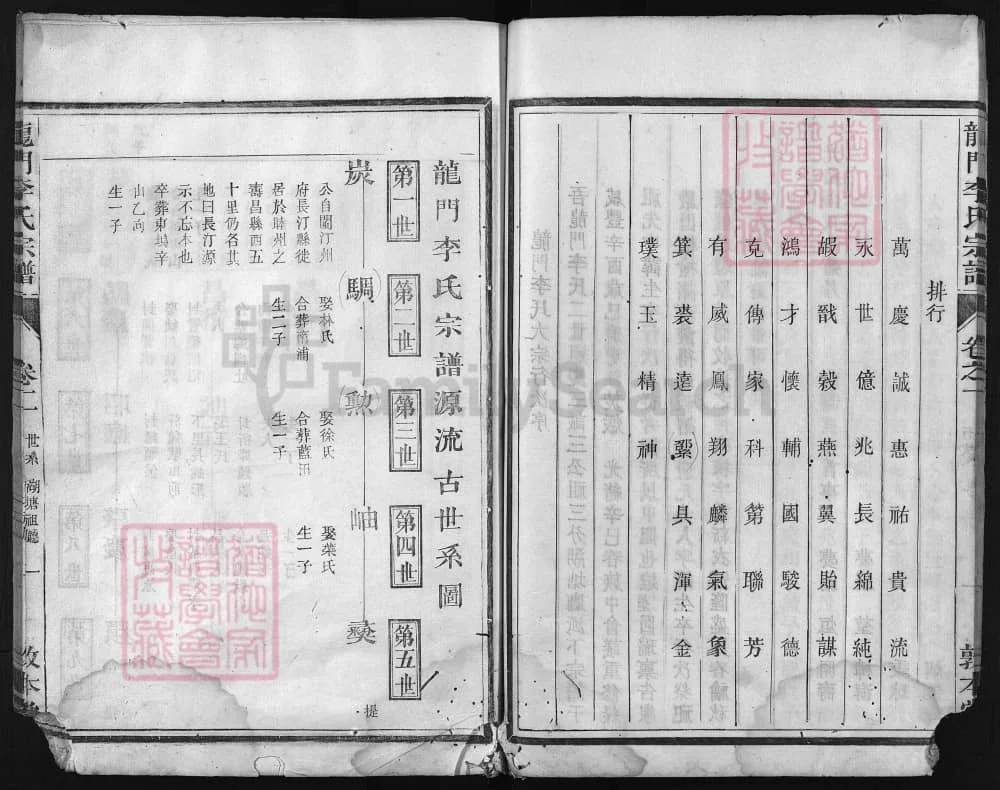 龍門李氏宗譜
卷之一
敦本堂
排行
萬慶誠惠祐貴流
永世億兆長綿純
嘏戩穀燕翼貽謀
鴻才懷輔國駿德
克傳家科第聯芳
有威鳳翔麟氣象
箕裘遠紹具渾金
璞玉精神
龍門李氏宗譜源流古世系圖
第一世
第二世
第三世
第四世
第五世
炭
騆
勲
岫
彝
公自閩汀州
府長汀縣徙
居於睦州之
壽昌縣西五
十里仍名其
地曰長汀源
示不忘本也
卒葬東塢辛
山乙向
生一子
娶林氏
合葬齊浦
生二子
娶徐氏
合葬藍田
生一子
娶葉氏
生一子
提
龍門李氏宗譜
卷二
世系
湖塘祖廳
一
敦本堂
FamilySearch